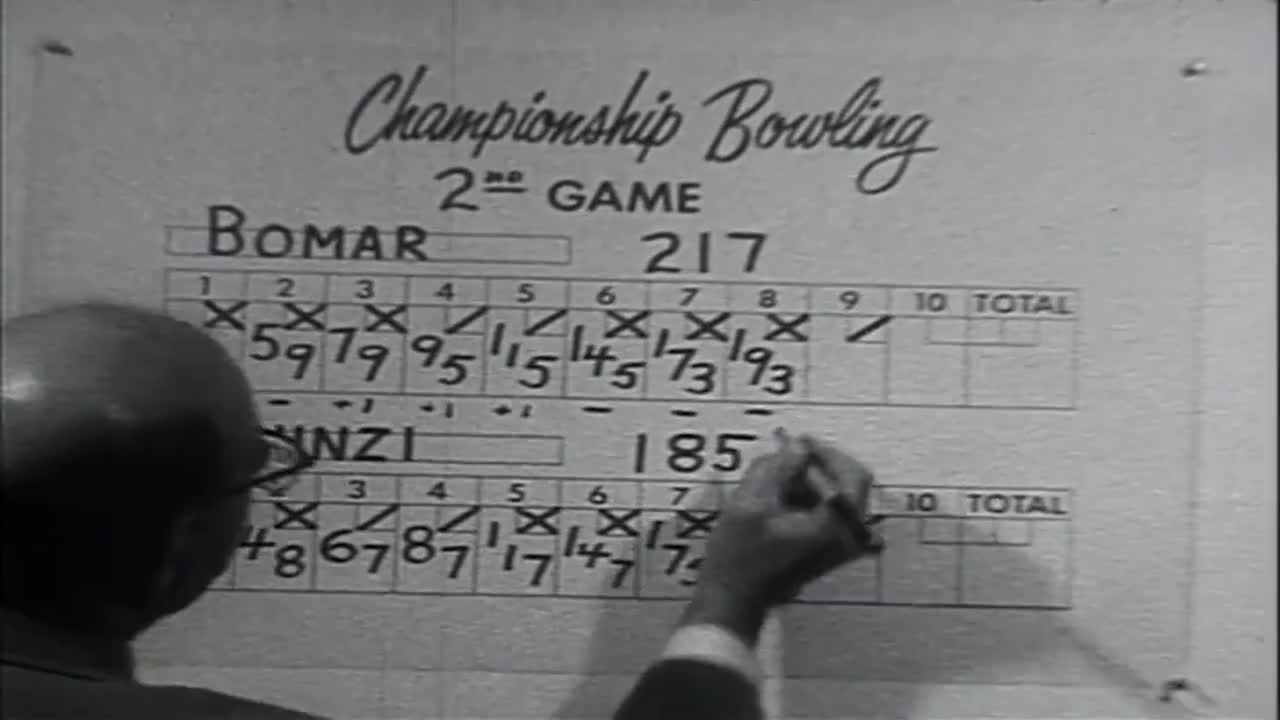 Championship Bowling
2ND GAME
BOMAR 217
1 2 3 4 5 6 7 8 9 10 TOTAL
X X X / / X X X /
59 79 95 115 145 173 193
- +1 +1 +1 - - -
NZI 185
3 4 5 6 7 10 TOTAL
X / / X X X
48 67 87 117 147